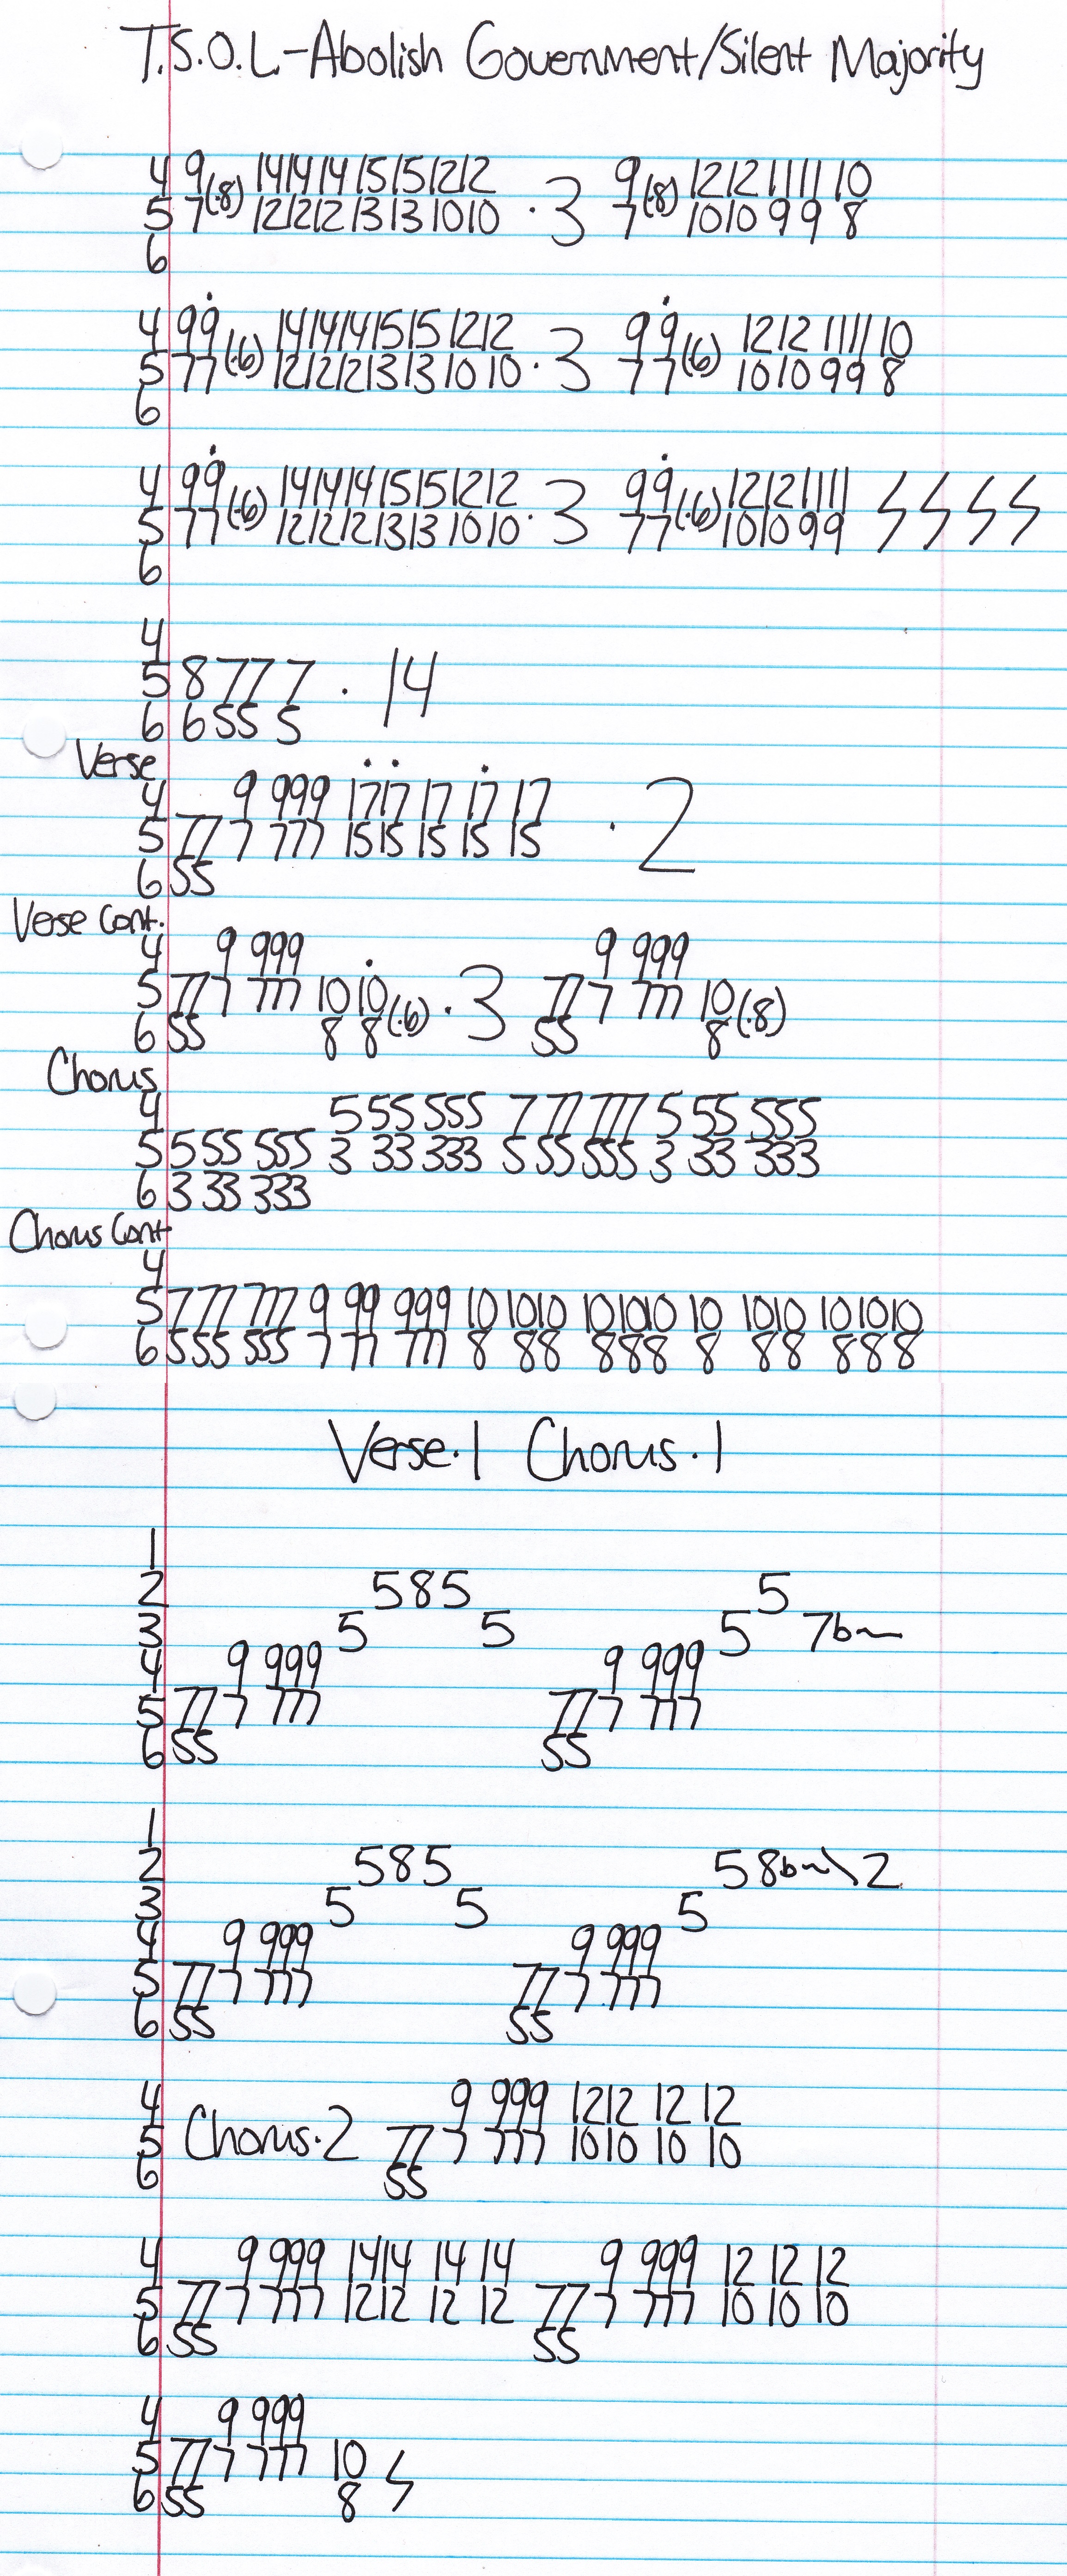 T.S.O.L.-Abolish Government/Silent Majority
4 9 14 14 14 15 15 12 12 9 12 12 11 11 10
5 7(·8) 12 12 12 13 13 10 10 · 3 7(·8) 10 10 9 9 8
6
4 9 9 14 14 14 15 15 12 12 9 9 12 12 11 11 10
5 7 7 (·6) 12 12 12 13 13 10 10 · 3 7 7 (·6) 10 10 9 9 8
6
4 9 9 14 14 14 15 15 12 12 9 9 12 12 11 11
5 7 7 (·6) 12 12 12 13 13 10 10 · 3 7 7 (·6) 10 10 9 9
6
4
5 8 77 7 · 14
6 6 55 5
Verse
4 9 999 17 17 17 17 17
5 77 7 777 15 15 15 15 15 · 2
6 55
Verse Cont.
4 9 999 9 999
5 77 7 777 10 10 (·6) · 3 77 7 777 10 (·8)
6 55 8 8 55 8
Chorus
4 5 55 555 7 77 777 5 55 555
5 5 55 555 3 33 333 5 55 555 3 33 333
6 3 33 333
Chorus Cont
4
5 7 77 777 9 99 999 10 1010 101010 10 1010 101010
6 5 55 555 7 77 777 8 88 888 8 88 888
Verse·1 Chorus·1
1
2 585 5
3 5 5 5 7b~
4 9 999 9 999
5 77 7 777 77 7 777
6 55 55
1
2 585 58b~\2
3 5 5 5
4 9 999 9 999
5 77 7 777 77 7 777
6 55 55
4 9 999 12 12 12 12
5 Chorus·2 77 7 777 10 10 10 10
6 55
4 9 999 14 14 14 14 9 999 12 12 12
5 77 7 777 12 12 12 12 77 7 777 10 10 10
6 55 55
4 9 999
5 77 7 777 10
6 55 8